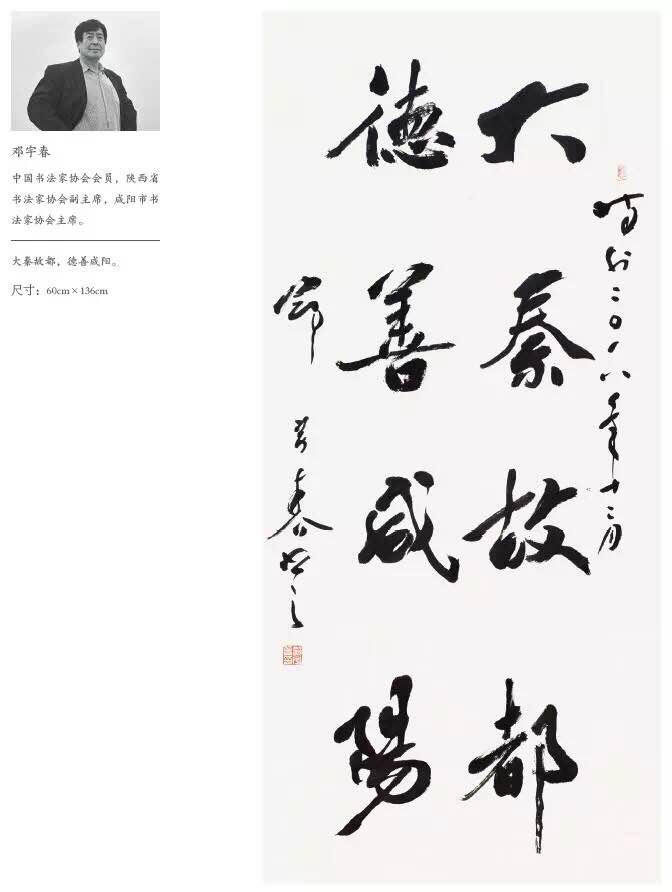 邓宇春
中国书法家协会会员，陕西省
书法家协会副主席，咸阳市书
法家协会主席。
大秦故都，德善咸阳。
尺寸：60cm×136cm
时於二〇一八年十二月
大秦故都
德善咸陽
邓
春